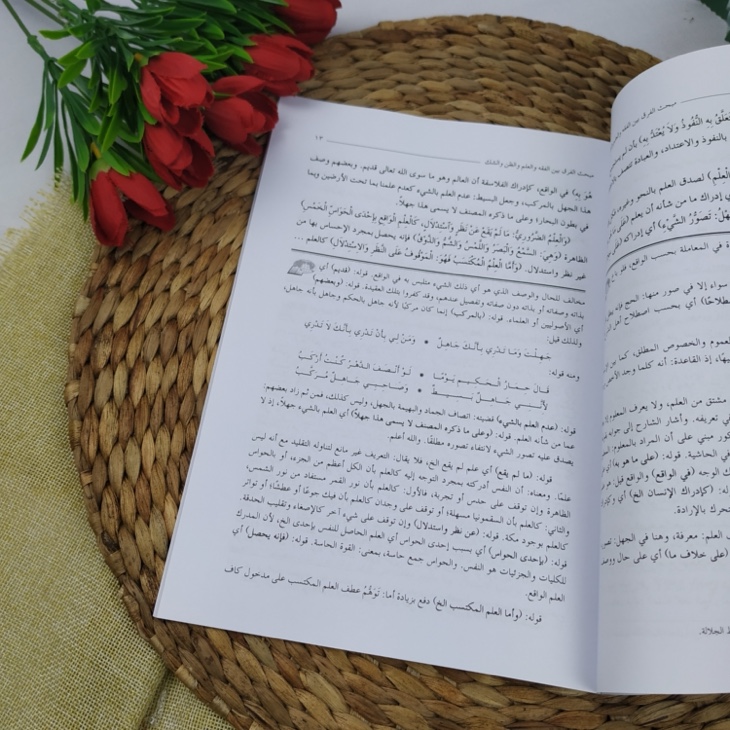 مبحث الفرق بين الفقه والعلم والظن والشك
١٣
هُوَ بِهِ) في الواقع، كإدراك الفلاسفة أن العالم وهو ما سوى الله تعالى قديم. وبعضهم وصف
هذا الجهل بالمركب، وجعل البسيط: عدم العلم بالشيء كعدم علمنا بما تحت الأرضين وبما
في بطون البحار؛ وعلى ما ذكره المصنف لا يسمى هذا جهلاً.
(وَالْعِلْمُ الضَّرُورِيُّ: مَا لَمْ يَقَعْ عَنْ نَظَرٍ وَاسْتِدْلَالٍ، كَالْعِلْمِ الْوَاقِعِ بِإِحْدَى الْحَوَاسِّ الْخَمْسِ)
الظاهرة (وَهِيَ: السَّمْعُ وَالْبَصَرُ وَاللَّمْسُ وَالشَّمُّ وَالذَّوْقُ) فإنه يحصل بمجرد الإحساس بها من
غير نظر واستدلال. (وَأَمَّا الْعِلْمُ الْمُكْتَسَبُ فَهُوَ: الْمَوْقُوفُ عَلَى النَّظَرِ وَالِاسْتِدْلَالِ) كالعلم ...
مخالف للحال والوصف الذي هو أي ذلك الشيء متلبس به في الواقع. قوله: (قديم) أي
بذاته وصفاته أو بذاته دون صفاته وتفصيل عندهم، وقد كفروا بتلك العقيدة. قوله: (وبعضهم)
أي الأصوليين أو العلماء. قوله: (بالمركب) إنما كان مركبًا لأنه جاهل بالحكم وجاهل بأنه جاهل،
ولذلك قيل:
جَهِلْتَ وَمَا تَدْرِي بِأَنَّكَ جَاهِلٌ * وَمَنْ لِي بِأَنْ تَدْرِي بِأَنَّكَ لَا تَدْرِي
ومنه قوله:
قَالَ حِمَارُ الْحَكِيمِ يَوْمًا * لَوْ أَنْصَفَ الدَّهْرُ كُنْتُ أَرْكَبُ
لِأَنَّنِي جَاهِلٌ بَسِيطٌ * وَصَاحِبِي جَاهِلٌ مُرَكَّبُ
قوله: (عدم العلم بالشيء) قضيته: اتصاف الجماد والبهيمة بالجهل، وليس كذلك، فمن ثم زاد بعضهم:
عما من شأنه العلم. قوله: (وعلى ما ذكره المصنف لا يسمى هذا جهلاً) أي العلم بالشيء جهلاً، إذ لا
يصدق عليه تصور الشيء لانتفاء تصوره مطلقًا. والله أعلم.
قوله: (ما لم يقع) أي علم لم يقع الخ، فلا يقال: التعريف غير مانع لتناوله التقليد مع أنه ليس
علمًا. ومعناه: أن النفس أدركته بمجرد التوجه إليه كالعلم بأن الكل أعظم من الجزء، أو بالحواس
الظاهرة وإن توقف على حدس أو تجربة، فالأول: كالعلم بأن نور القمر مستفاد من نور الشمس،
والثاني: كالعلم بأن السقمونيا مسهلة؛ أو توقف على وجدان كالعلم بأن فيك جوعًا أو عطشًا؛ أو تواتر
كالعلم بوجود مكة. قوله: (عن نظر واستدلال) وإن توقف على شيء آخر كالإصغاء وتقليب الحدقة.
قوله: (بإحدى الحواس) أي بسبب إحدى الحواس أي العلم الحاصل للنفس بإحدى الخ، لأن المدرك
للكليات والجزئيات هو النفس. والحواس جمع حاسة، بمعنى: القوة الحاسة. قوله: (فإنه يحصل) أي
العلم الواقع.
قوله: (وأما العلم المكتسب الخ) دفع بزيادة أما: تَوَهُّمَ عطف العلم المكتسب على مدخول كاف
مبحث الفرق بين الفقه
يَتَعَلَّقُ بِهِ النُّفُوذُ وَلَا يُعْتَدُّ بِهِ) بأن
بالنفوذ والاعتداد، والعبادة تتصف
الْعِلْمِ) لصدق العلم بالنحو وغيره،
أي إدراك ما من شأنه أن يعلم (عَلَى
تَصَوُّرُ الشَّيْءِ) أي إدراكه
في المعاملة بحسب الواقع،
سواء إلا في صور منها: الحج
أي بحسب اصطلاح أهل
العموم والخصوص المطلق، كما بين
إذ القاعدة: أنه كلما وجد الأخص
مشتق من العلم، ولا يعرف المعلوم
في تعريفه. وأشار الشارح إلى جوابه
مبني على أن المراد بالمعلوم
في الحاشية. قوله: (على ما هو به)
الوجه (في الواقع) والواقع قيل:
(كإدراك الإنسان الخ) أي
بالإرادة.
العلم: معرفة، وهنا في الجهل:
(على خلاف ما) أي على حال
الجلالة.